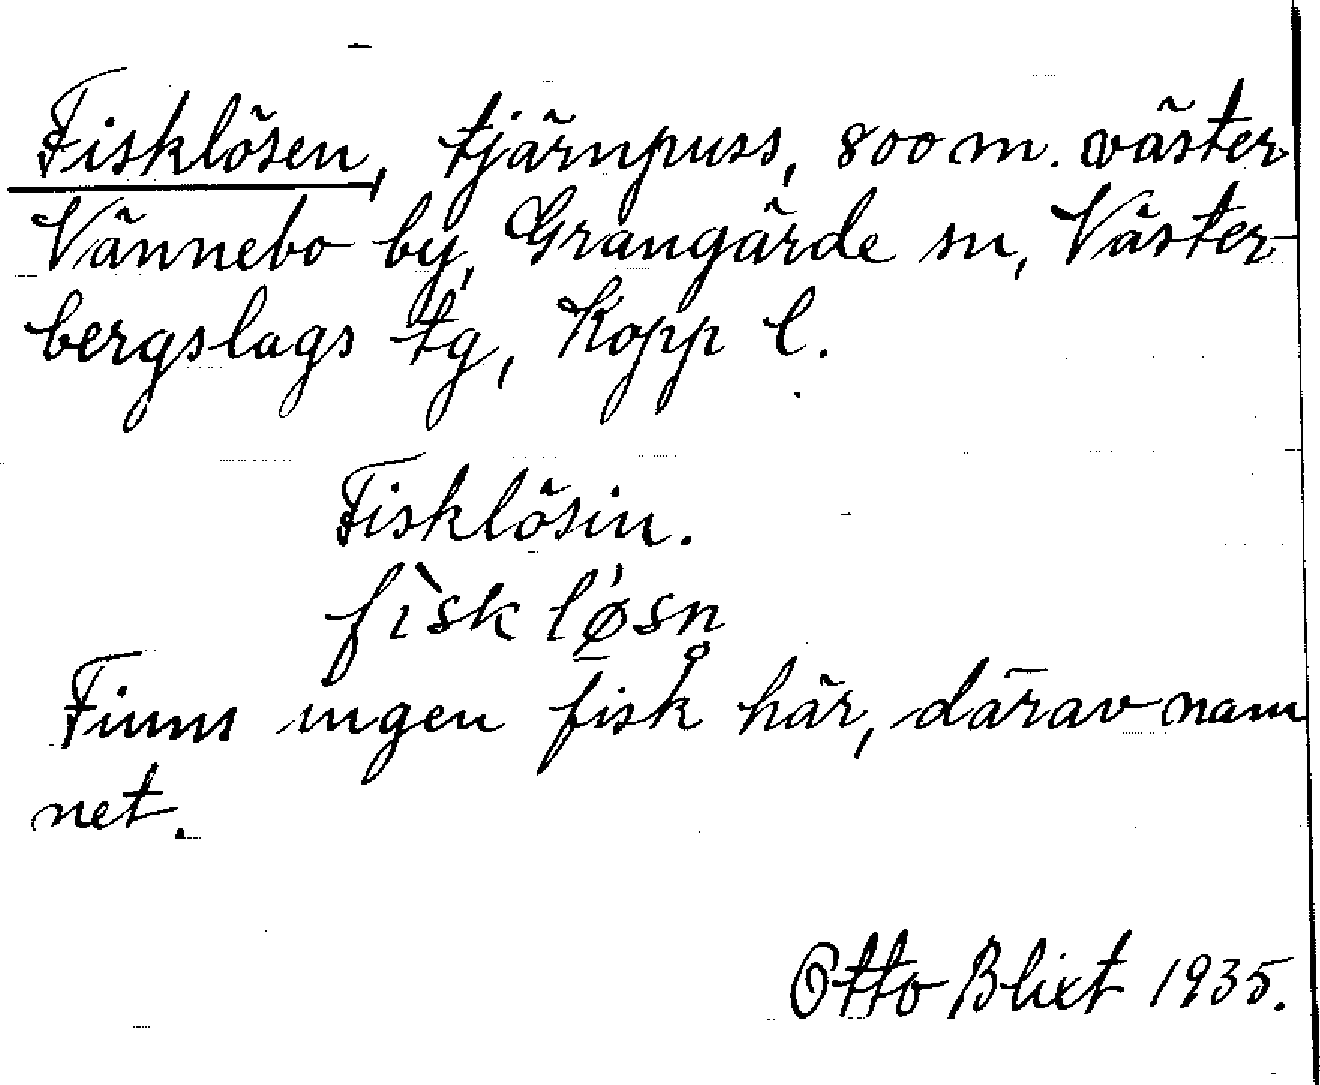 Fisklösen, tjärnpuss, 800 m. väster
Vännebo by, Grangärde sn, Väster-
bergslags tg, Kopp l.
Fisklösin.
fìsk lǿsn̥
Finns ingen fisk här, därav nam
net.
Otto Blixt 1935.